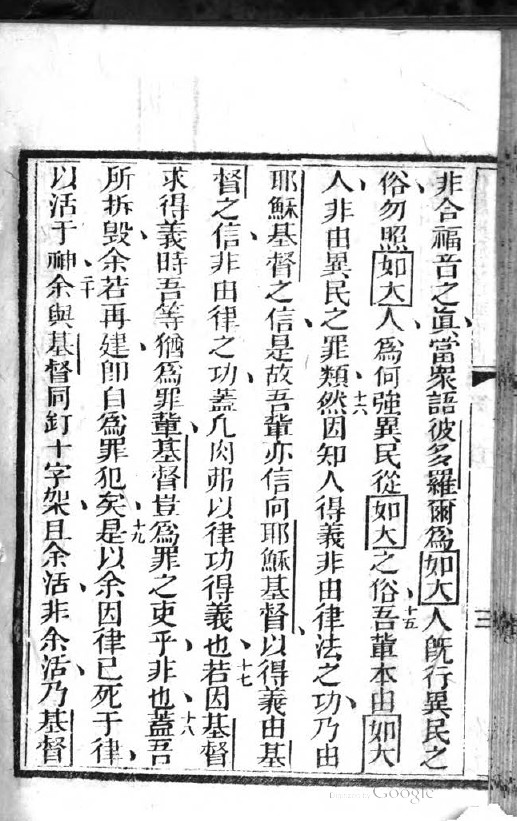 非合福音之眞、當衆語彼多羅爾爲如大人旣行異民之
俗、勿照如大人、爲何強異民從如大之俗、十五吾輩本由如大
人、非由異民之罪類、十六然因知人得義非由律法之功、乃由
耶穌基督之信、是故吾輩亦信向耶穌基督、以得義由基
督之信、非由律之功、蓋凡肉弗以律功得義也、十七若因基督
求得義時、吾等猶爲罪輩、基督豈爲罪之吏乎、非也、十八蓋吾
所拆毀、余若再建、卽自爲罪犯矣、十九是以余因律已死于律、
以活于神、二十余與基督同釘十字架、且余活、非余活、乃基督
三
Digitized by Google